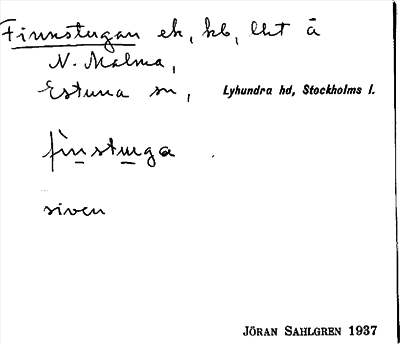 Finnstugan ek, kb, lht å
N. Malma,
Estuna sn, Lyhundra hd, Stockholms l.
fìnstuga
siven
JÖRAN SAHLGREN 1937